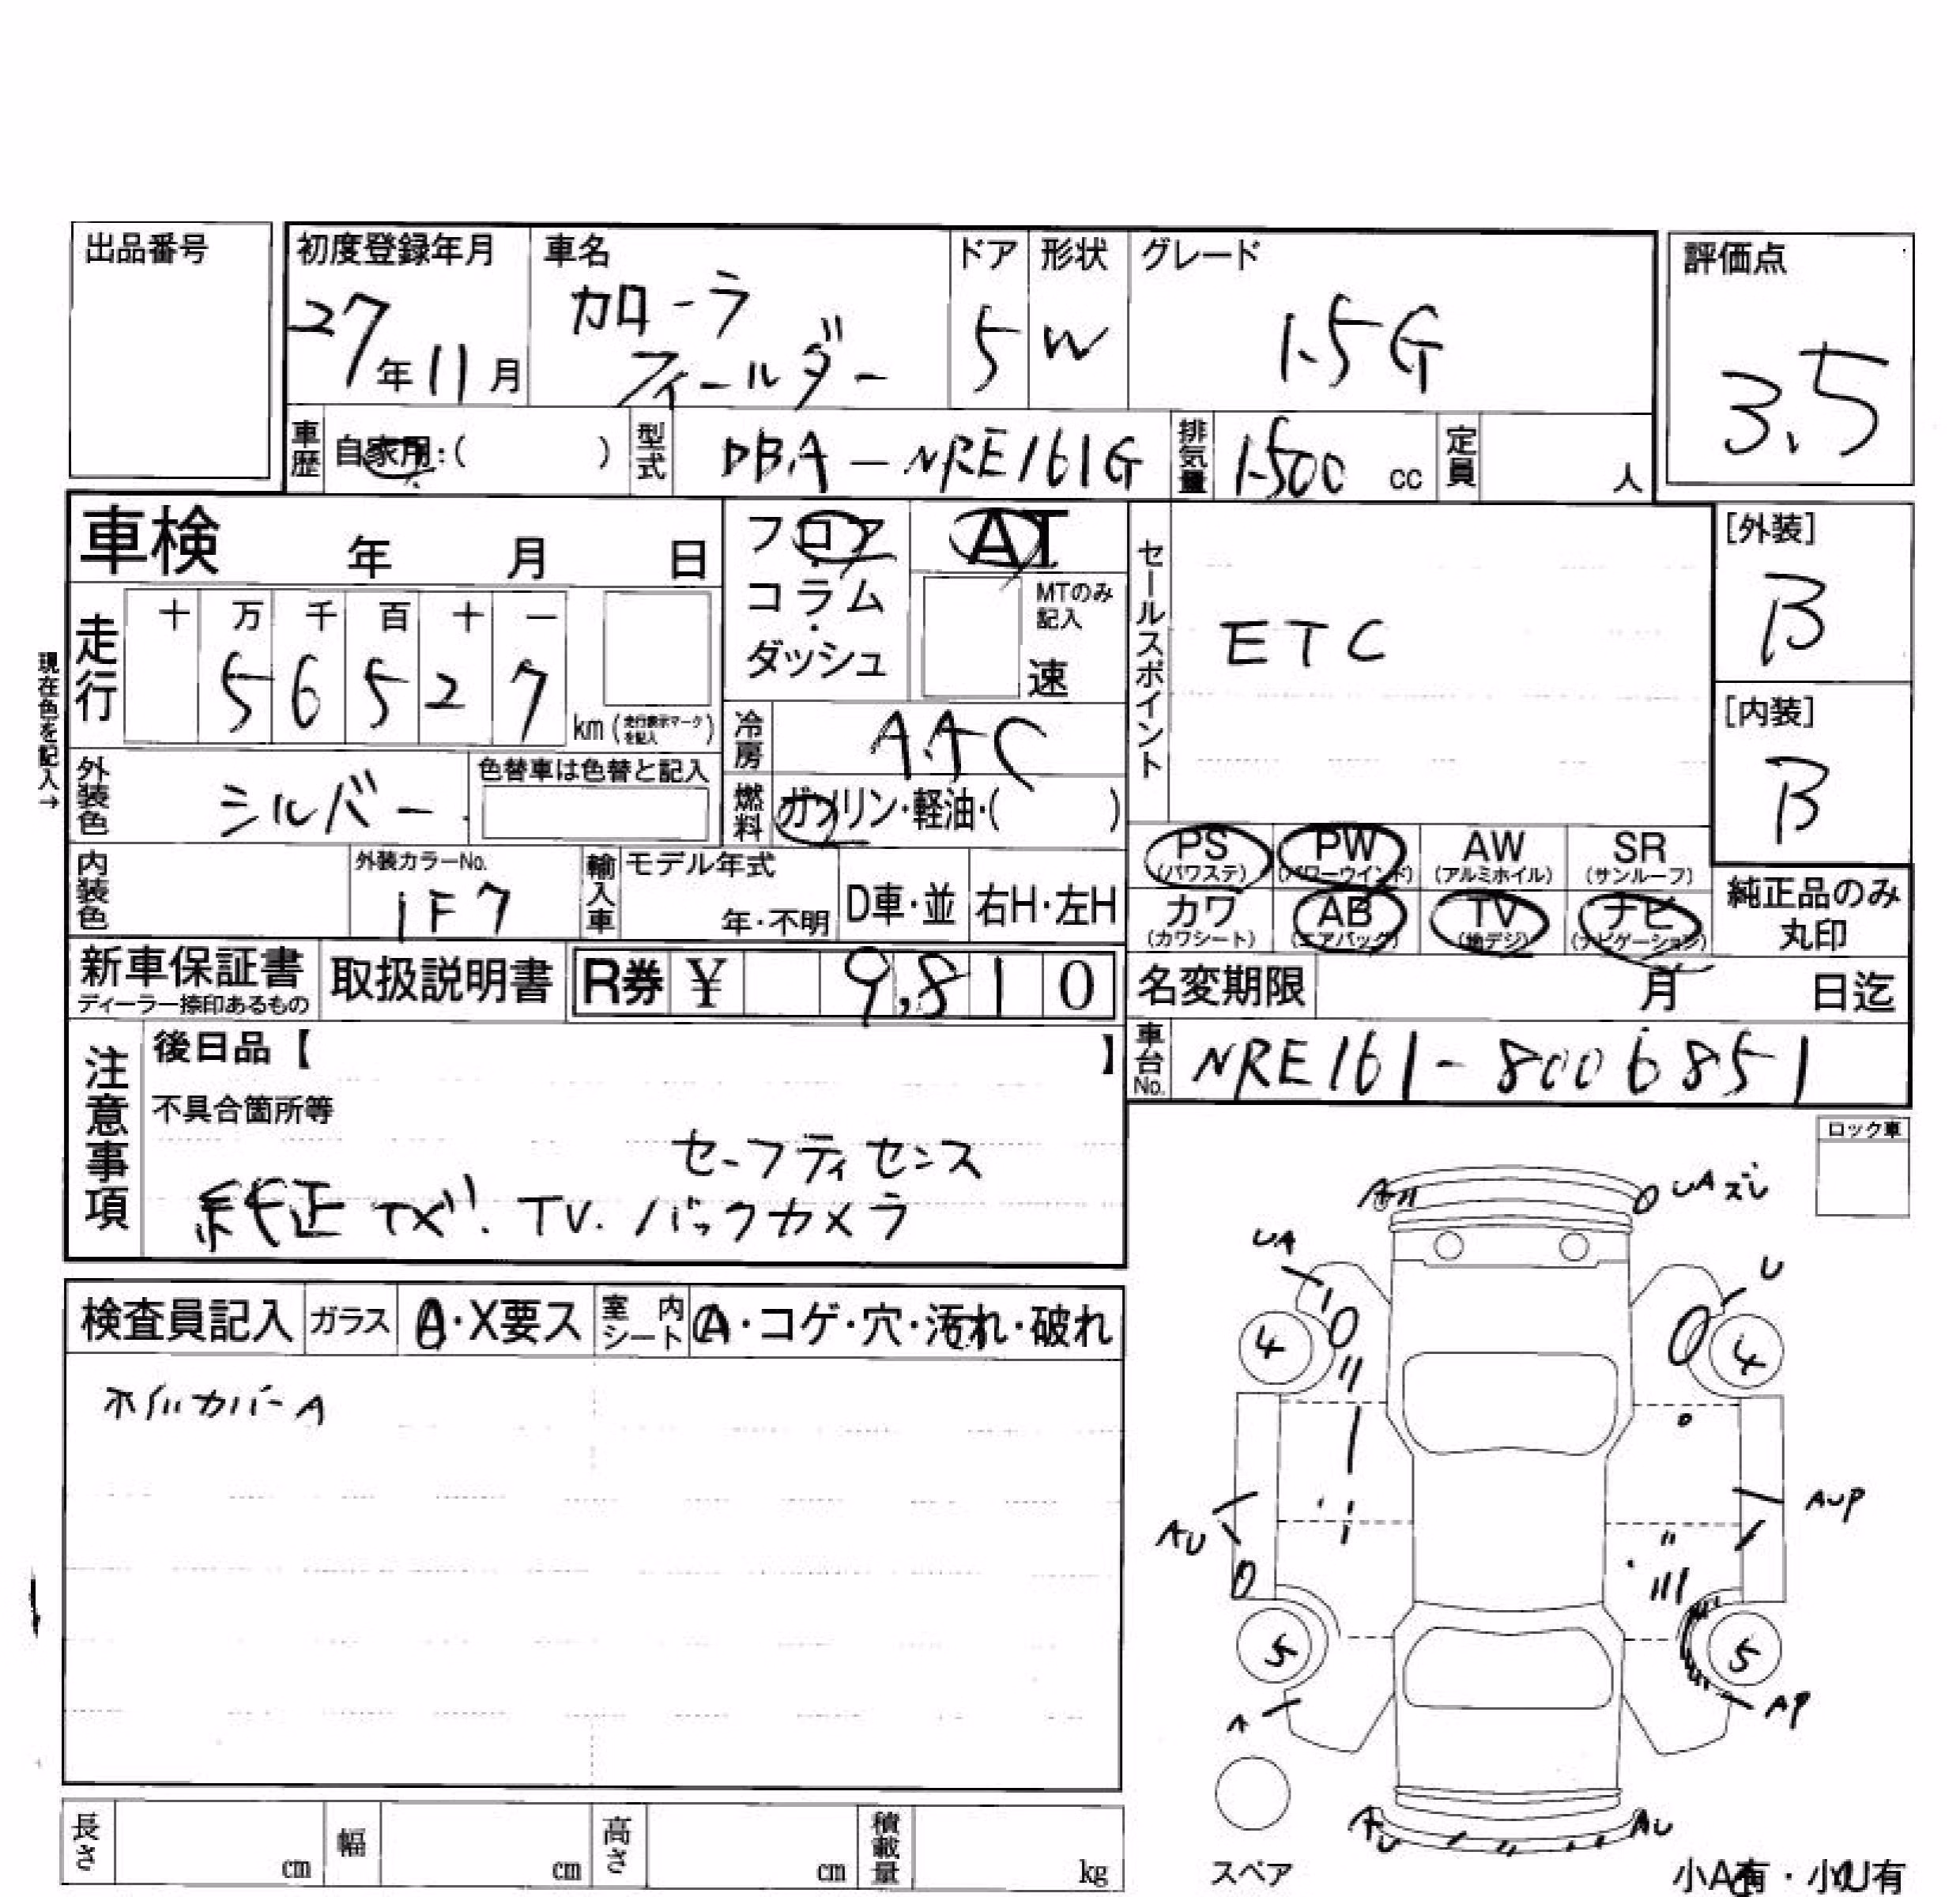 出品番号
初度登録年月 車名 ドア 形状 グレード 評価点
27年11月 カローラ フィールダー 5 W 1.5G 3.5
車歴 自家用:( ) 型式 DBA-NRE161G 排気量 1500 cc 定員 人
車検 年 月 日
フロア・コラム・ダッシュ
AT
MTのみ記入
速
セールスポイント
ETC
[外装]
B
[内装]
B
現在色を記入→
走行 十 万 千 百 十 一
5 6 5 2 7
km(走行表示マークを記入)
冷房 AAC
燃料 ガソリン・軽油・( )
外装色 シルバー 色替車は色替と記入
内装色 外装カラーNo. 1F7
輸入車 モデル年式 年・不明 D車・並 右H・左H
PS (パワステ) PW (パワーウインド) AW (アルミホイル) SR (サンルーフ)
カワ (カワシート) AB (エアバッグ) TV (地デジ) ナビ (ナビゲーション)
純正品のみ丸印
新車保証書 ディーラー捺印あるもの 取扱説明書 R券 ¥ 9,810
名変期限 月 日迄
車台No. NRE161-8006851
注意事項
後日品【 】
不具合箇所等
セーフティセンス
純正 TV. バックカメラ
ロック車
検査員記入 ガラス A・X要ス 室内シート A・コゲ・穴・汚れ・破れ
ホイルカバーA
UAズレ
UA
U
4 4
AU
AUP
5 5
A
AP
AU
AU
スペア
小A有・小U有
長さ cm 幅 cm 高さ cm 積載量 kg